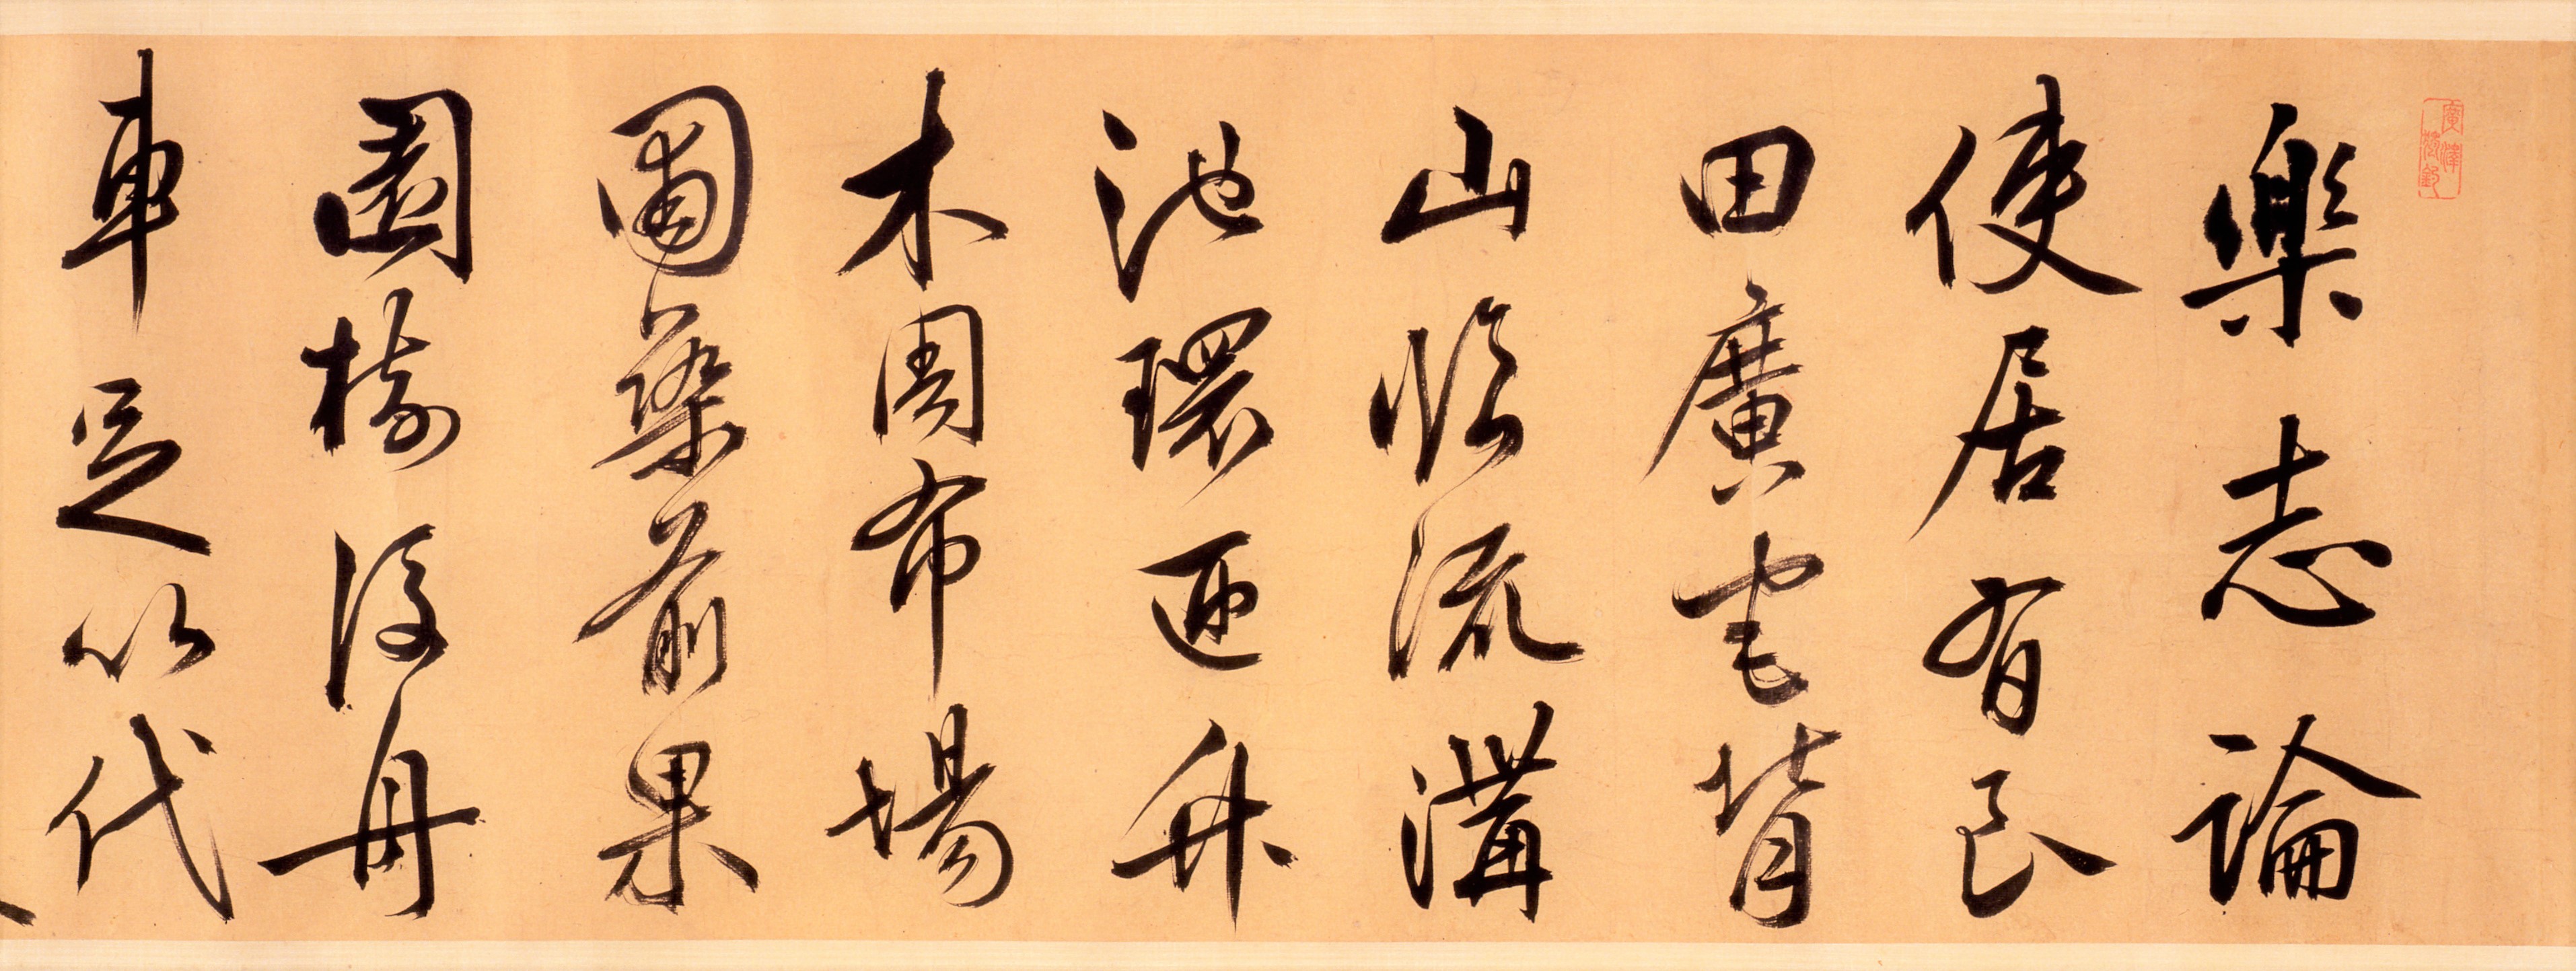 樂志論
使居有良
田廣宅背
山臨流溝
池環匝竹
木周布場
圃築前果
園樹後舟
車足以代